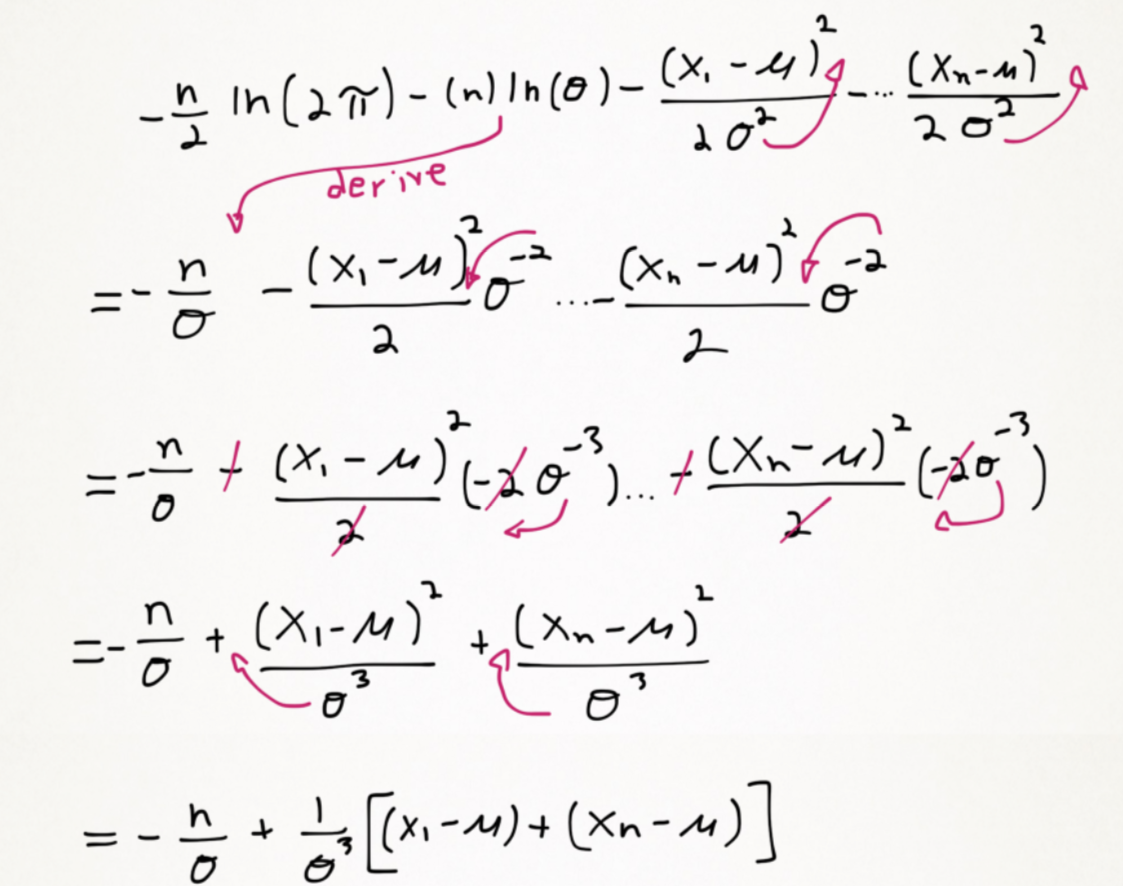 -n/2 ln(2π) - (n) ln(σ) - (x₁ - μ)²/2σ² - ... (xₙ - μ)²/2σ²
derive
= - n/σ - (x₁ - μ)²/2 σ⁻² ... - (xₙ - μ)²/2 σ⁻²
= - n/σ + (x₁ - μ)²/2 (-2σ⁻³) ... + (xₙ - μ)²/2 (-2σ⁻³)
= - n/σ + (x₁ - μ)²/σ³ + (xₙ - μ)²/σ³
= - n/σ + 1/σ³ [(x₁ - μ) + (xₙ - μ)]